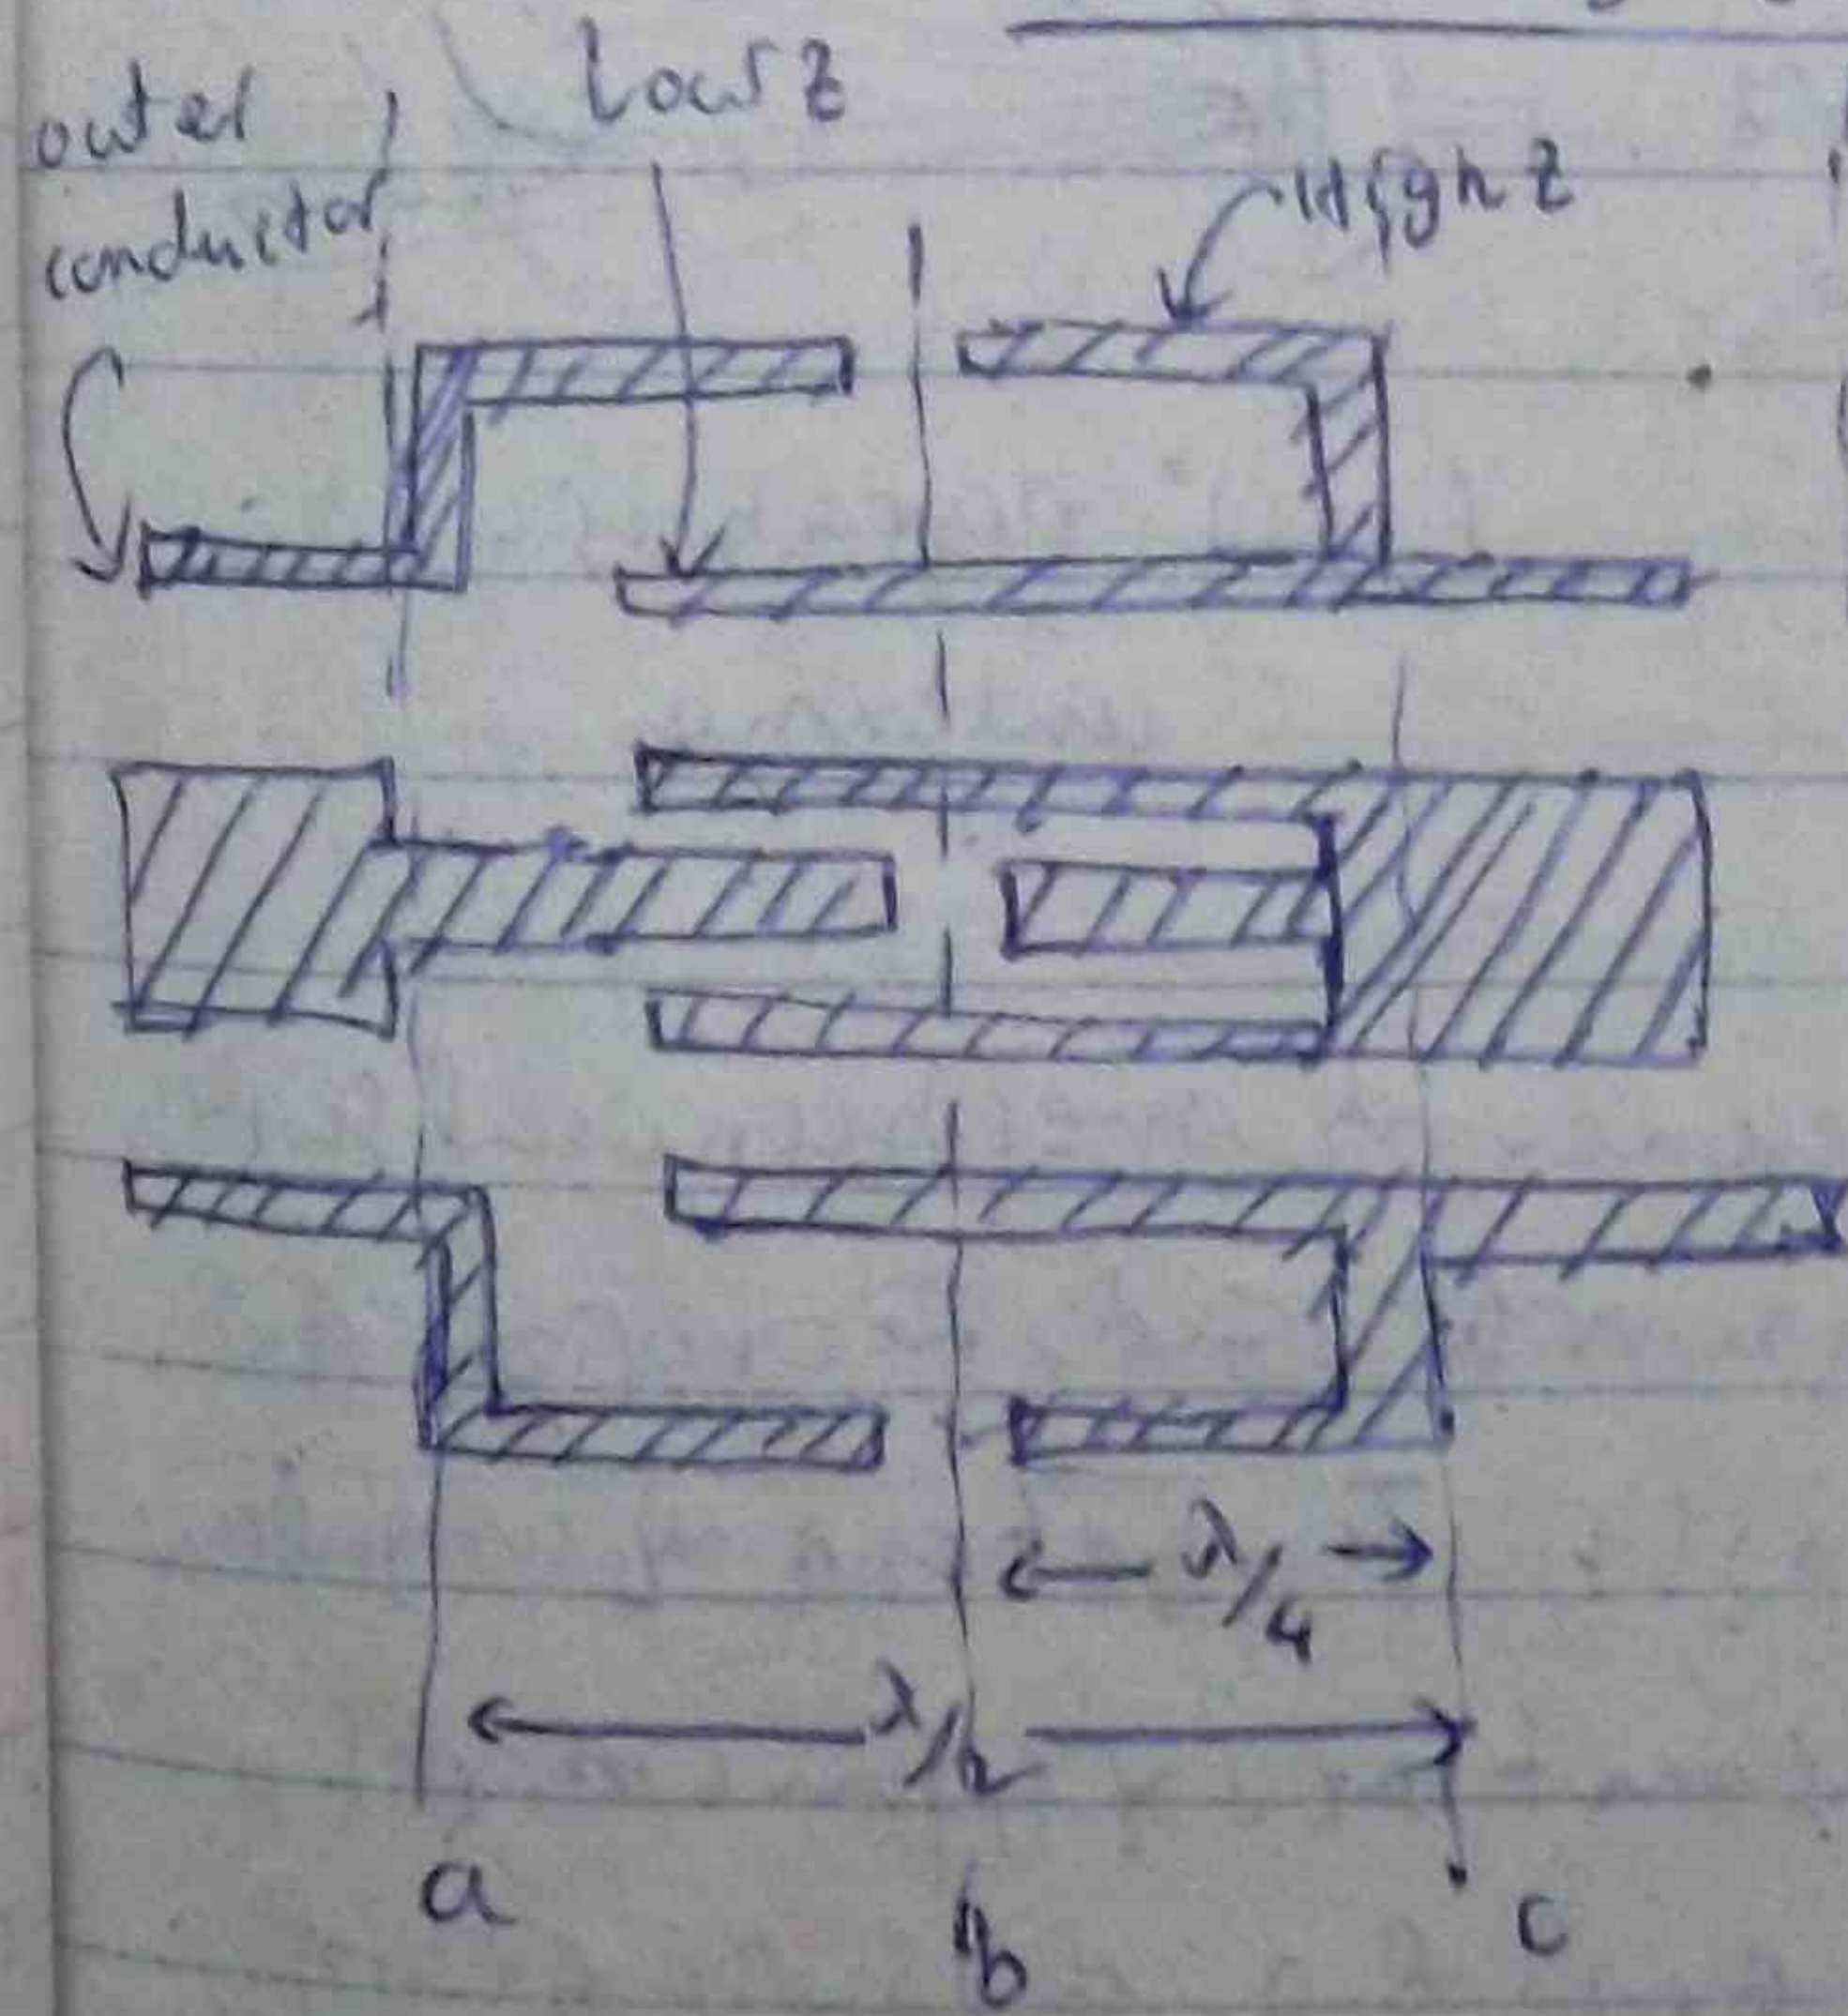 outer
conductor
Low Z
High Z
λ/4
λ/2
a
b
c